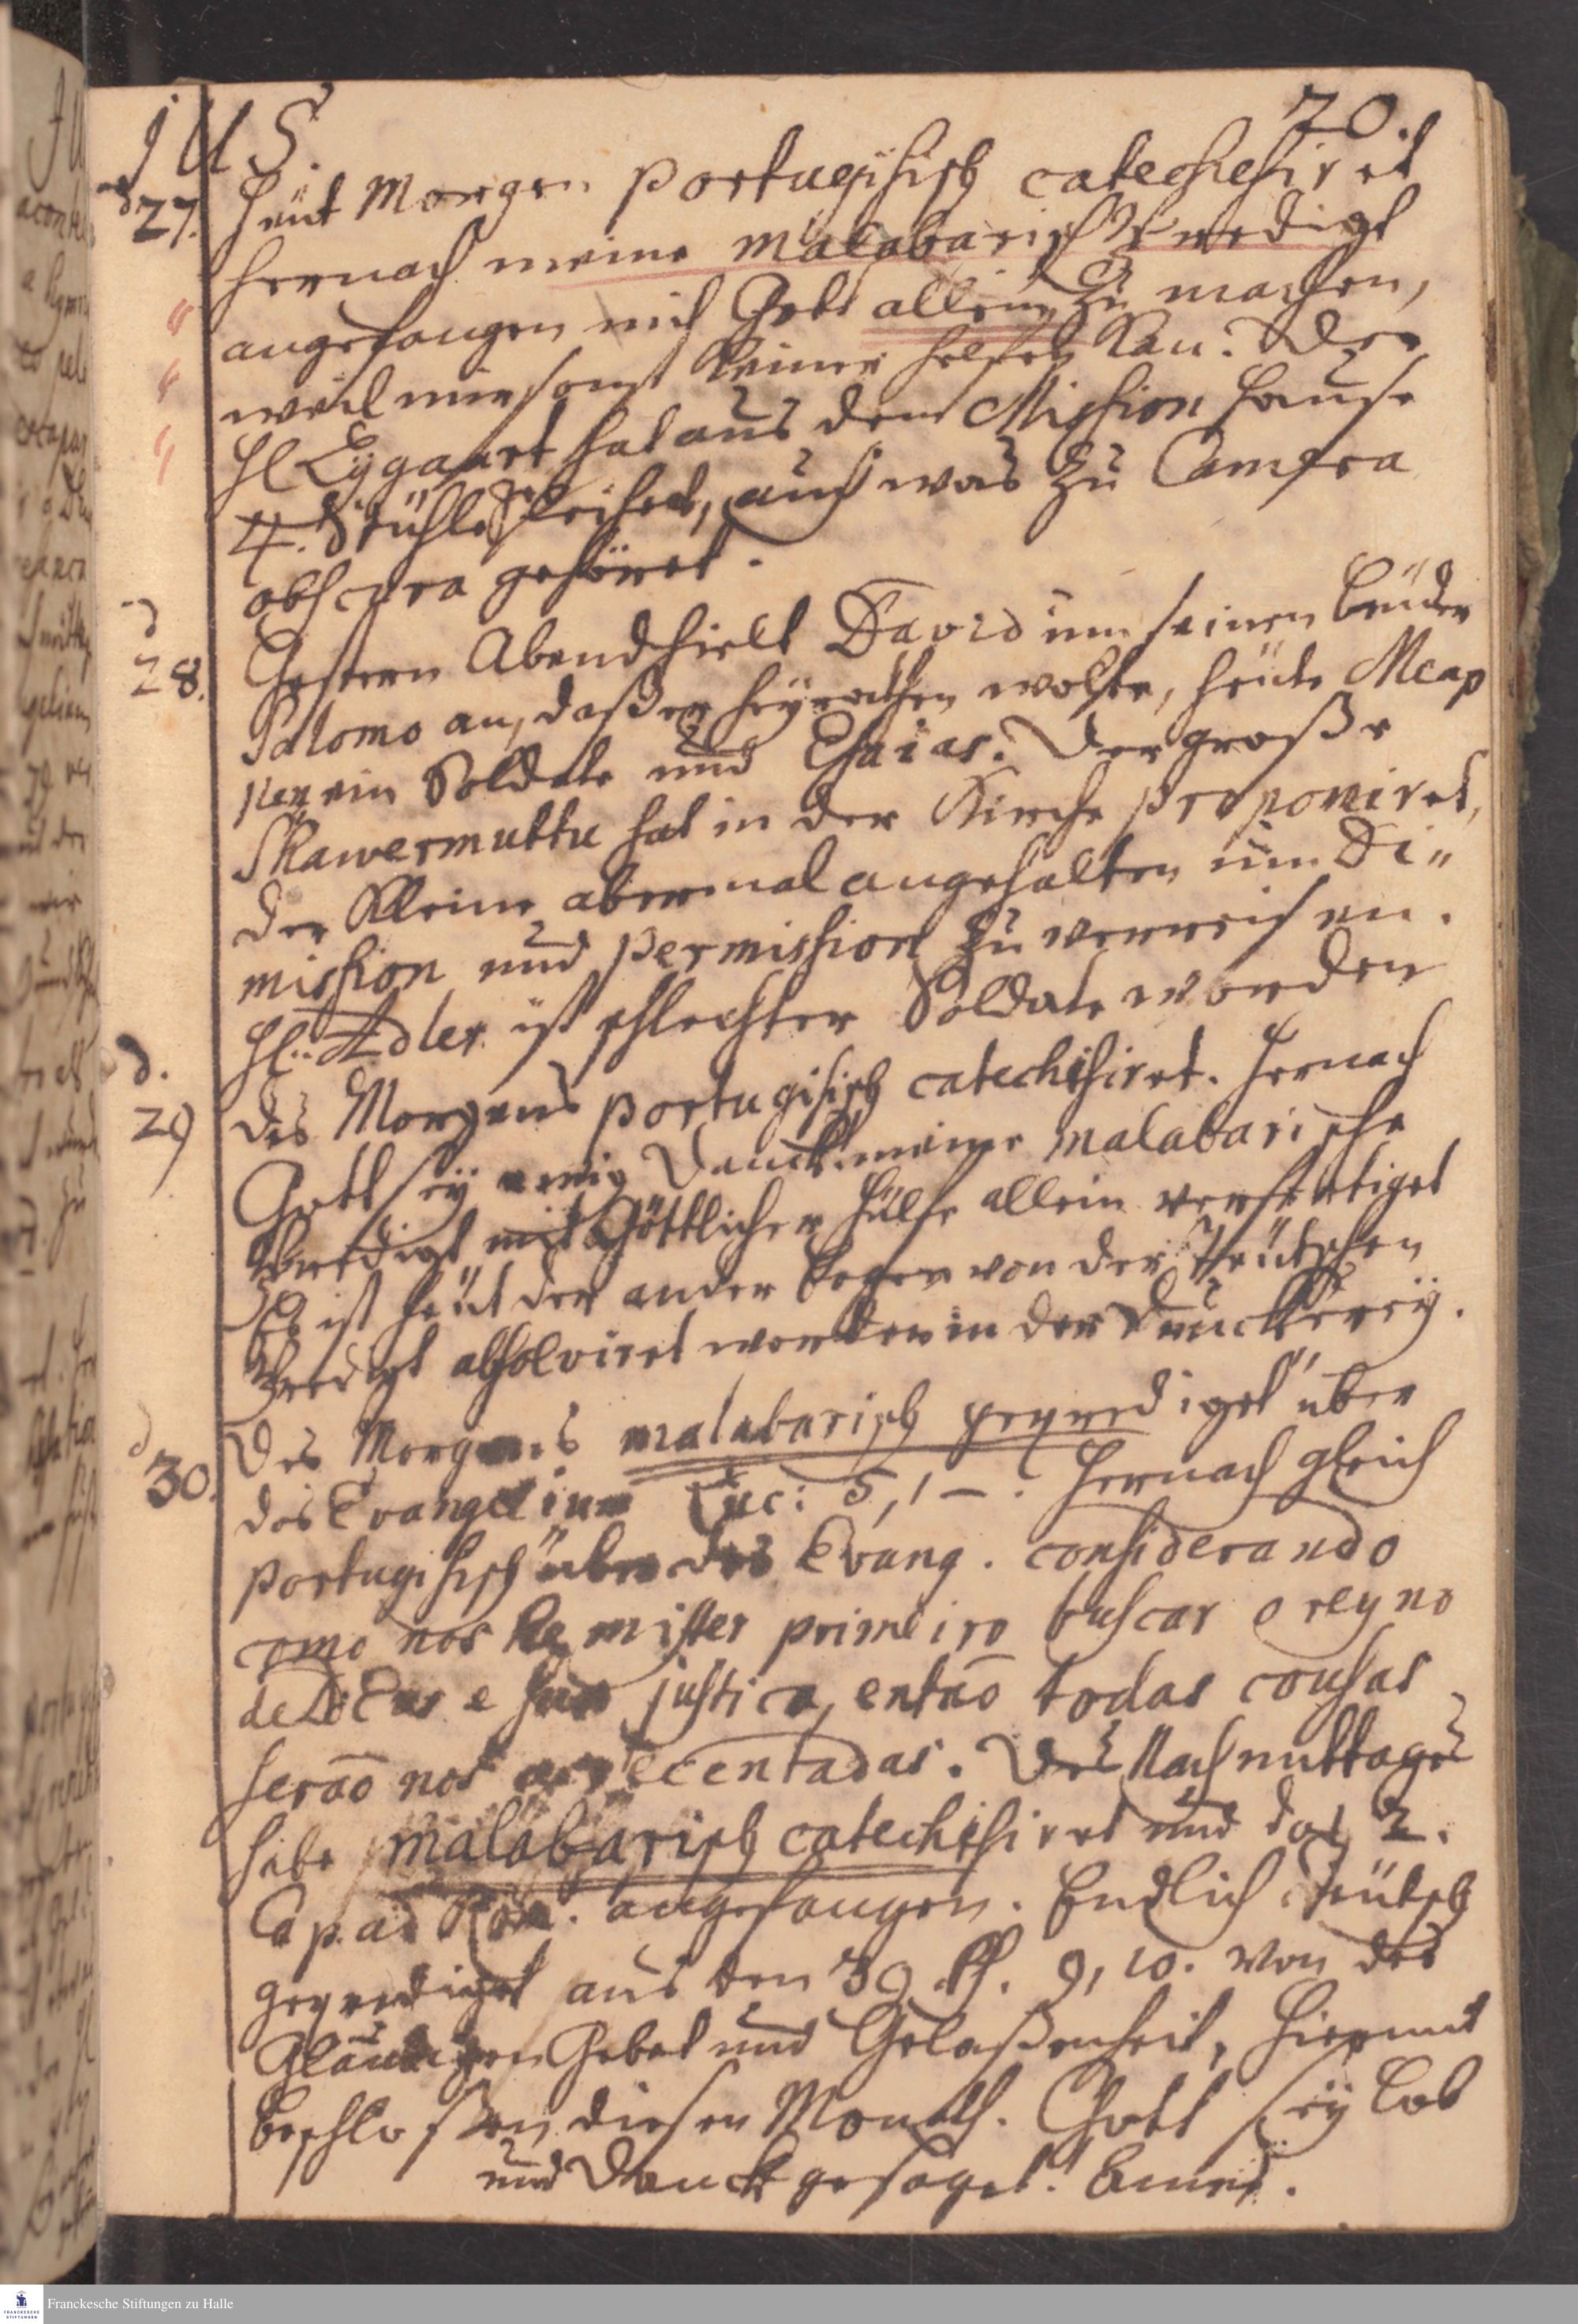 70.
JUS.
d 27. Heut Morgen Portugisisch catechesiret
hernach meine malabarisch Predigt
angefangen mit Gott allein zu machen,
weil mir sonst keiner helfen kan. Der
H Eygaart hat aus dem Mission Hause
4. Stühle geleihet, auch was zu Camera
obscura gehöret.
d 28. Gestern Abend hielt David um seinen bruder
Salomo an, daß er heyrathen wolte, heute Meap
pen ein Soldate und Esaias. Der große
Skawermuttu hat in der Kirche proponiret,
der Kleine abermal angehalten um Di„
mission und permission zu verreisen.
H. Adler ist schlechter Soldate worden
d. 29 des Morgens portugisisch catechisiret. Hernach
Gott sey ewig Danck meine malabarische
Predigt mit Göttlicher Hülfe allein verfertiget
Es ist heut der ander bogen von der Teutschen
Predigt absolviret worden in der Druckerey.
d 30. Des Morgens malabarisch geprediget über
das Evangelium Luc: 5, 1 –. Hernach gleich
Portugisisch über das Evang. considerando
como nos he mister primeiro buscar o reyno
de Deus e sua justica, entaõ todas cousas
seraõ nos acrecentadas. Des Nachmittages
habe malabarisch catechisiret und das 2.
Cap. ad Rom. angefangen. Endlich Teutsch
geprediget aus den 39 Ps. 9, 10. von des
Gläubigen Gebet und Gelaßenheit, hiermit
beschloßen diesen Monath. Gott sey Lob
und Danck gesaget. Amen.
Franckesche Stiftungen zu Halle